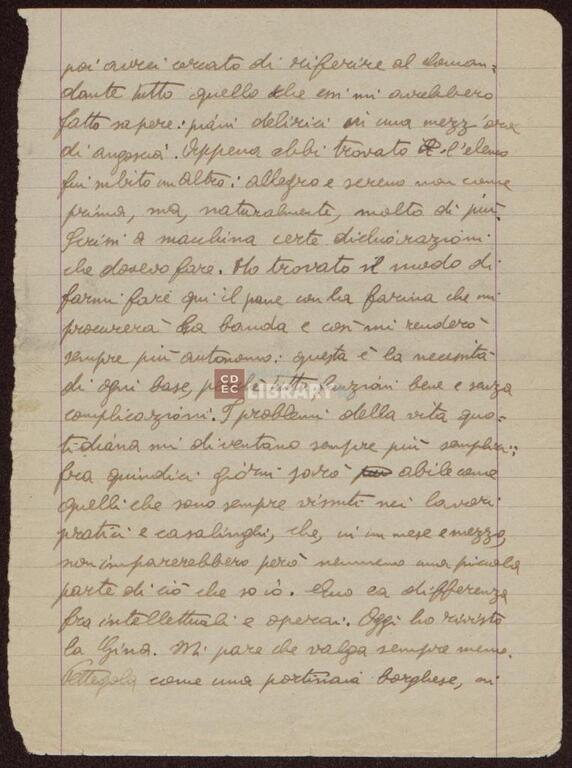 poi avrei cercato di riferire al coman=
dante tutto quello che essi mi avrebbero
fatto sapere: piani delirici in una mezz'ora
di angoscia. Appena ebbi trovato l'elenco
fui subito un altro: allegro e sereno non come
prima, ma, naturalmente, molto di più.
Scrissi a macchina certe dichiarazioni
che dovevo fare. Ho trovato il modo di
farmi fare qui il pane con la farina che mi
procurerà la banda e così mi renderò
sempre più autonomo: questa è la necessità
di ogni base, perchè tutto funzioni bene e senza
complicazioni. I problemi della vita quo-
tidiana mi diventano sempre più semplici:
fra quindici giorni sarò abile come
quelli che sono sempre vissuti nei lavori
pratici e casalinghi, che, in un mese e mezzo,
non imparerebbero però nemmeno una piccola
parte di ciò che so io. Ecco la differenza
fra intellettuali e operai. Oggi ho rivisto
la Gina. Mi pare che valga sempre meno.
Pettegola come una portinaia borghese, mi
CDEC LIBRARY